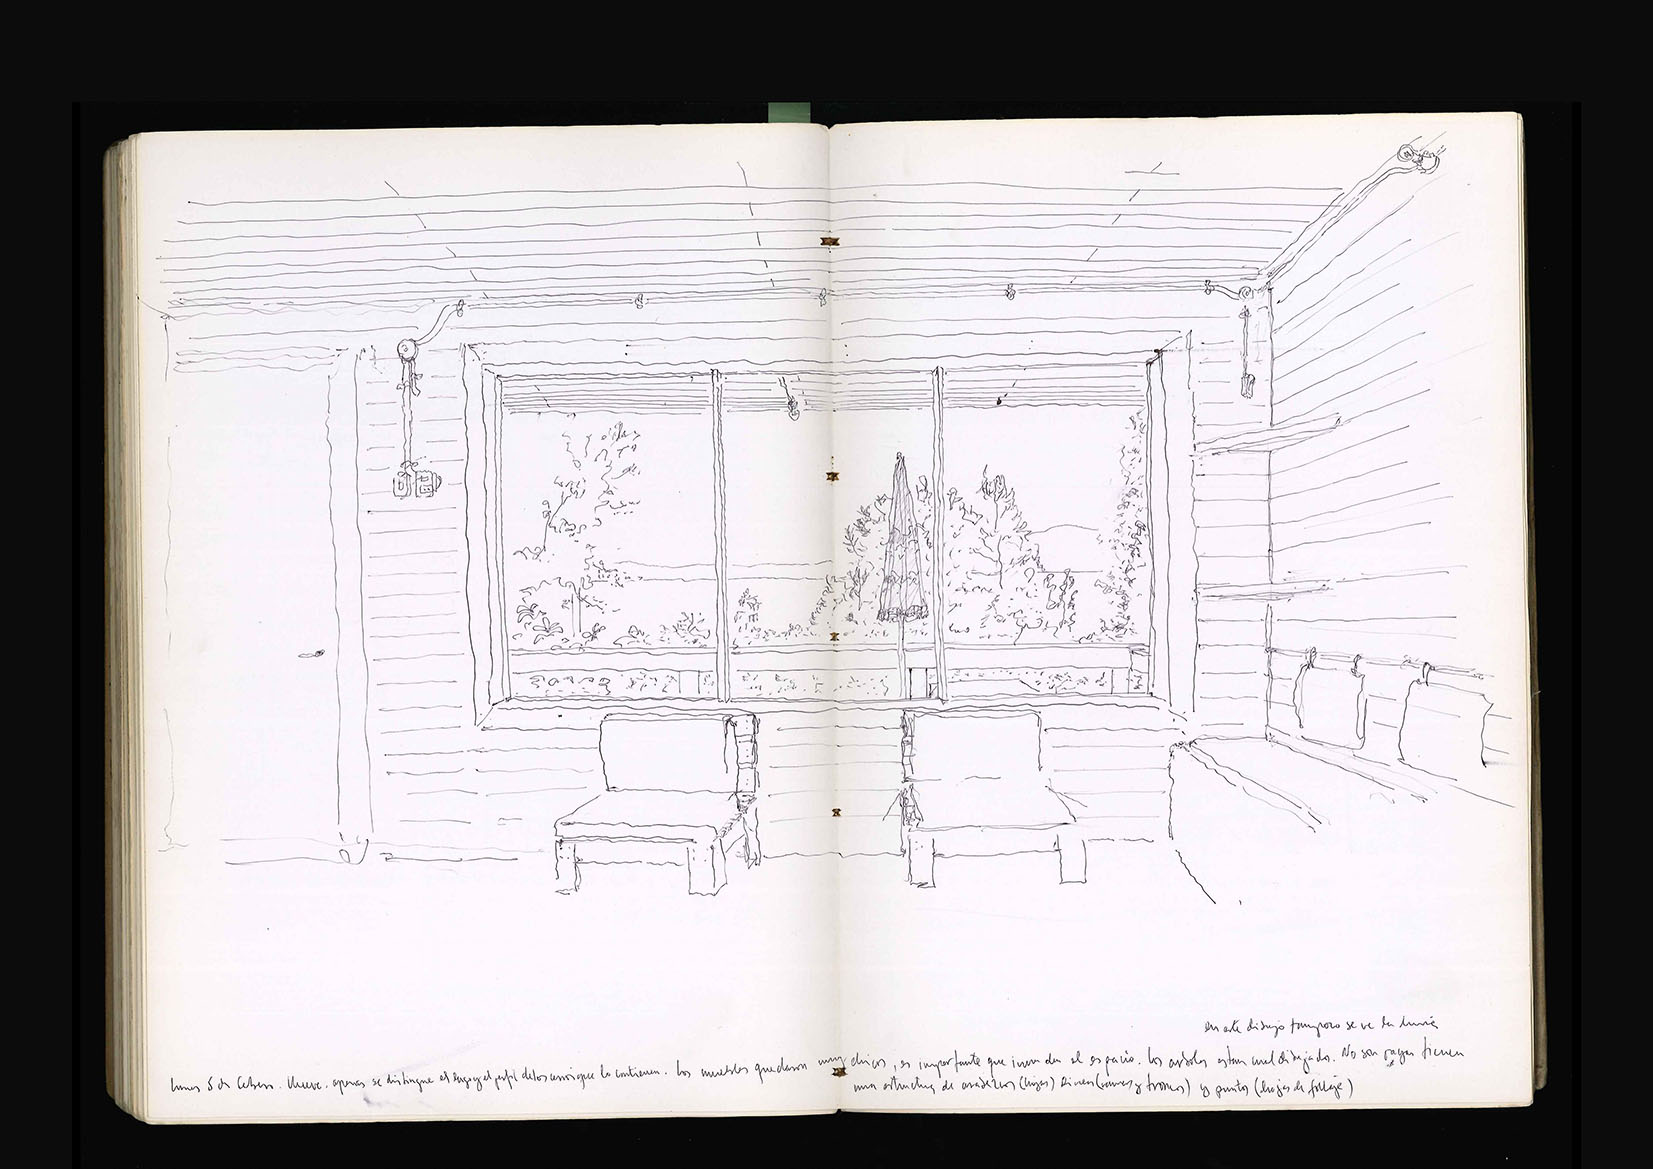 en este dibujo tampoco se ve la lluvia
lunes 5 de febrero. llueve. apenas se distingue el lago y el perfil de los cerros que lo contienen. Los muebles quedaron muy chicos, es importante que invadan el espacio. los arboles estan mal dibujados. No son rayas tienen
una estructura de (hojas) lineas (ramas y troncos) y puntos (hojas de follaje)